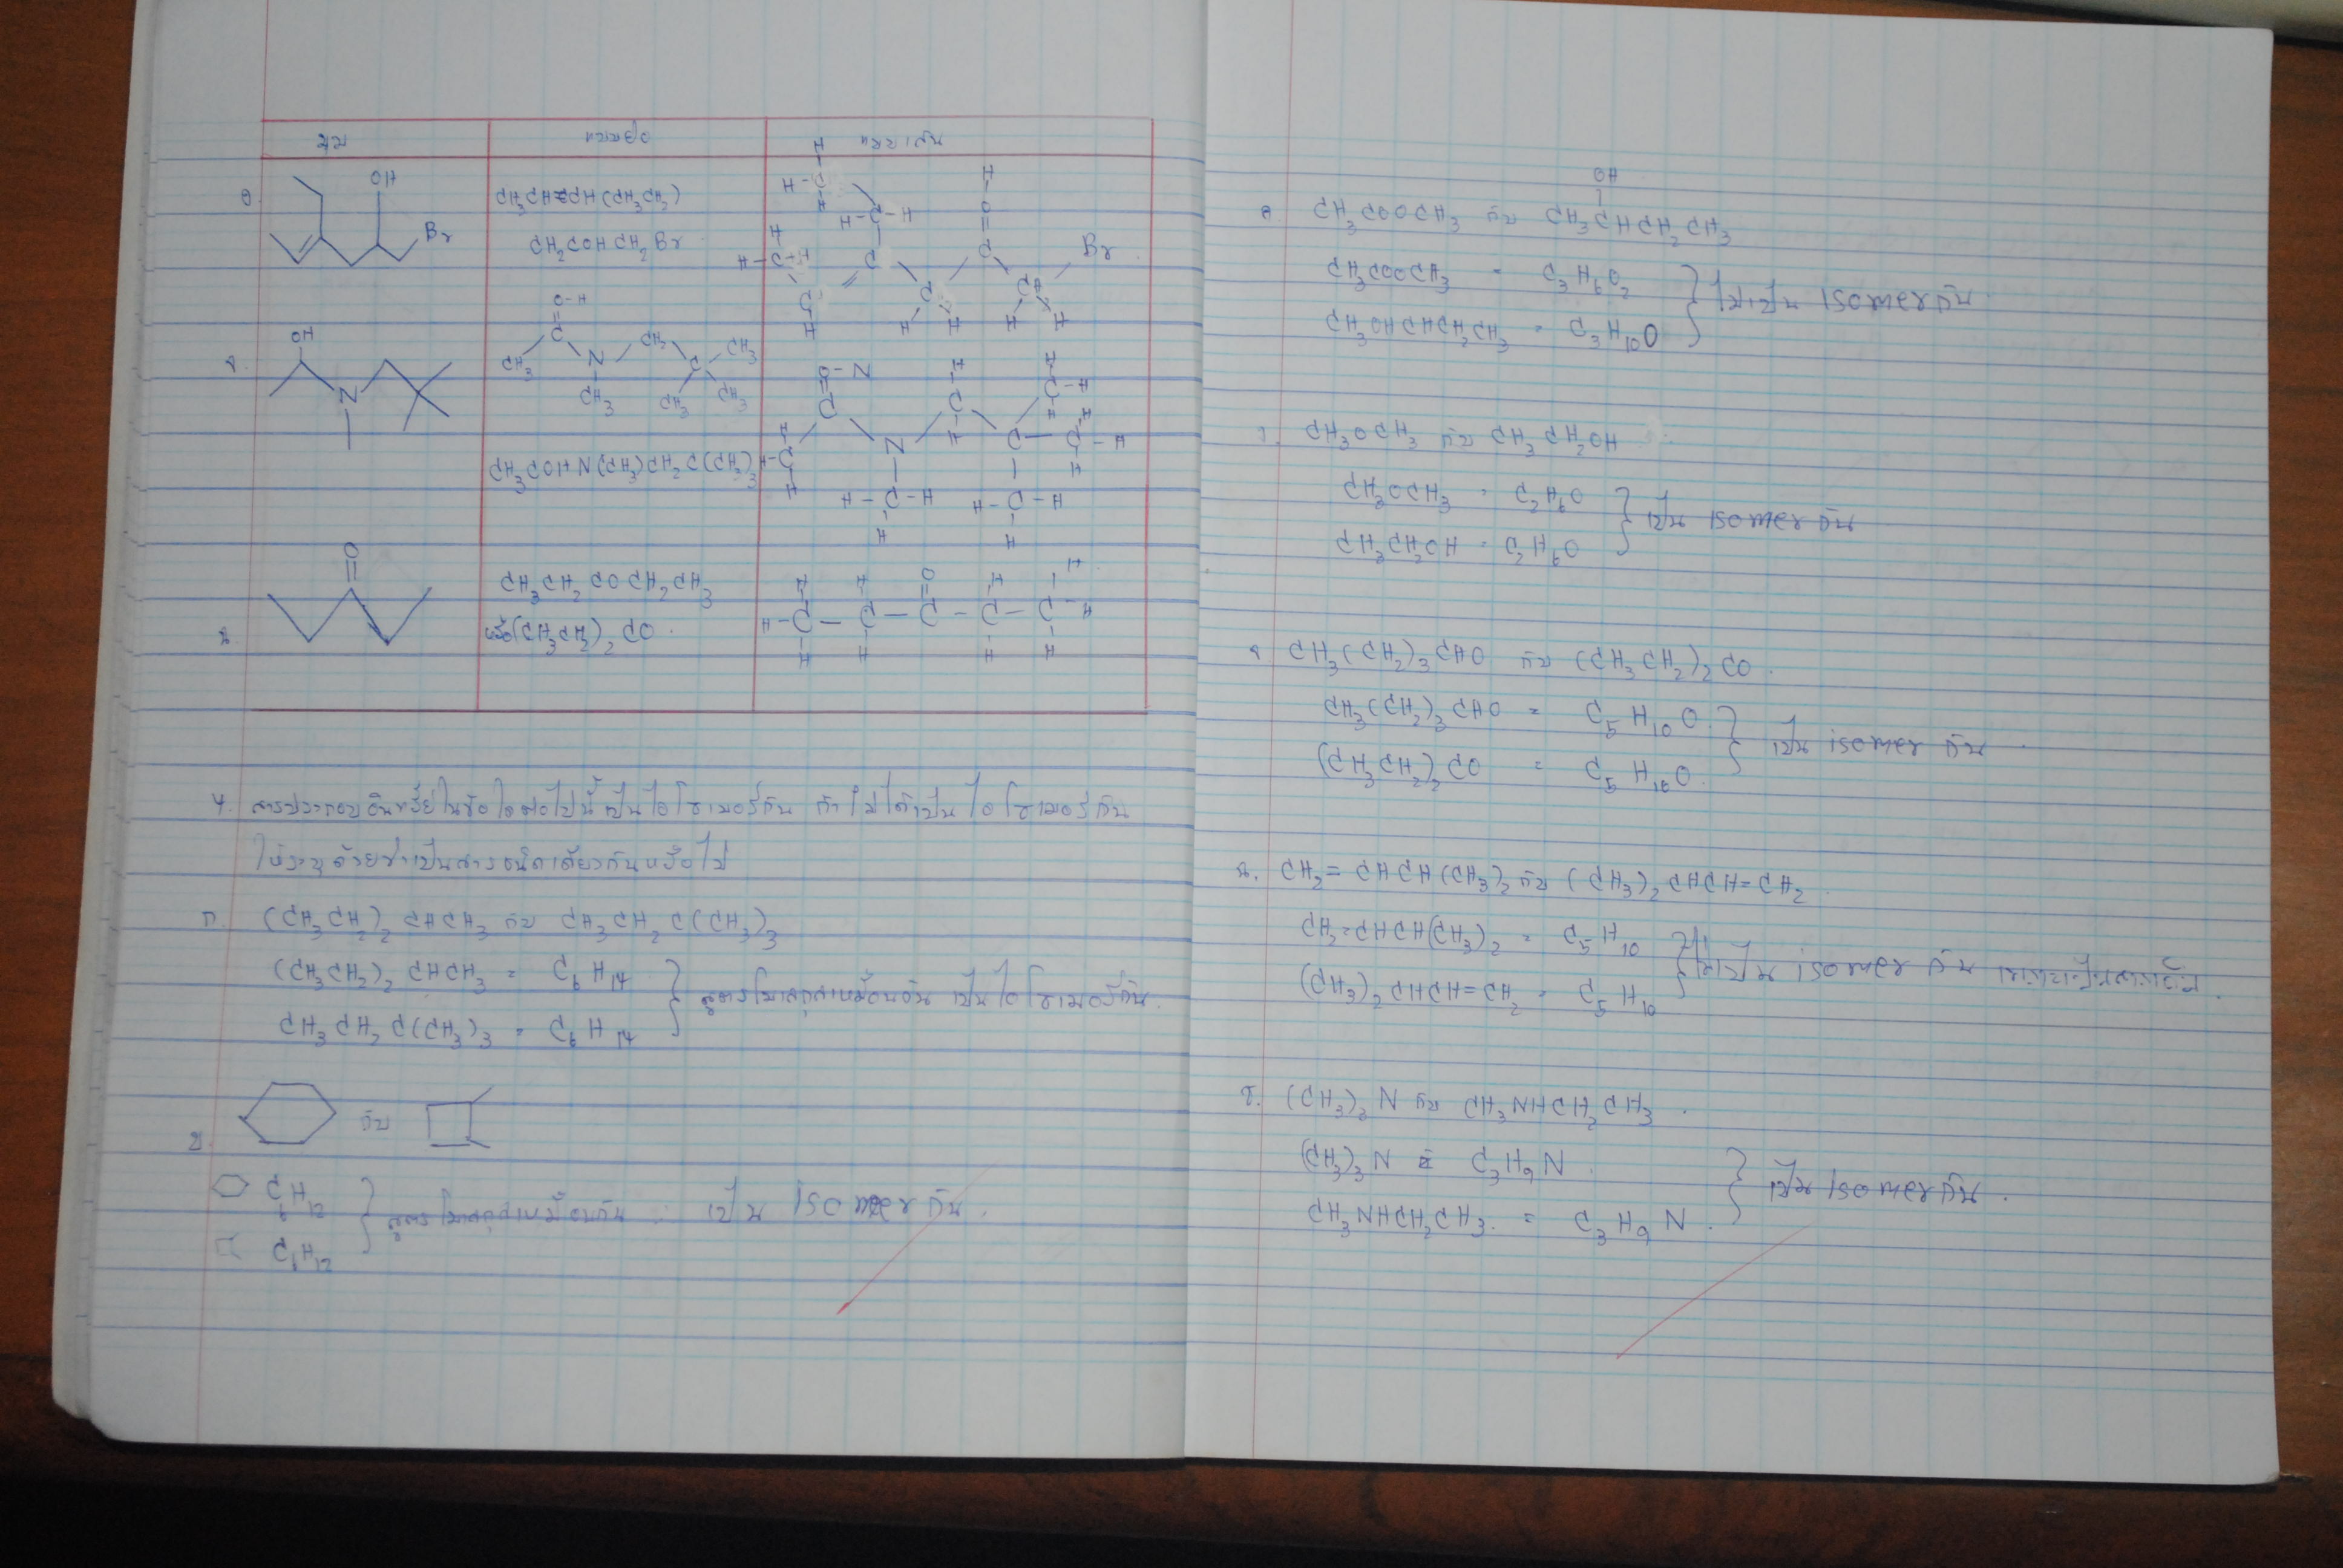 มุม ย่อแบบ แบบเส้น
OH
CH3CH=CH(CH3CH2)
CH2COHCH2Br
Br
OH
N
CH3COHN(CH3)CH2C(CH3)3
O
CH3CH2COCH2CH3
หรือ(CH3CH2)2CO
4. สารประกอบอินทรีย์ในข้อใดต่อไปนี้เป็นไอโซเมอร์กัน ถ้าไม่ได้เป็นไอโซเมอร์กัน
ให้ระบุด้วยว่าเป็นสารชนิดเดียวกันหรือไม่
ก. (CH3CH2)2CHCH3 กับ CH3CH2C(CH3)3
(CH3CH2)2CHCH3 = C6H14
CH3CH2C(CH3)3 = C6H14
สูตรโมเลกุลเหมือนกัน เป็นไอโซเมอร์กัน.
ข. กับ
C6H12
C6H12
สูตรโมเลกุลเหมือนกัน เป็น isomer กัน.
OH
CH3COOCH3 กับ CH3CHCH2CH3
CH3COOCH3 = C3H6O2
CH3OHCHCH2CH3 = C3H10O
ไม่เป็น isomer กัน
ง. CH3OCH3 กับ CH3CH2OH
CH3OCH3 = C2H6O
CH3CH2OH = C2H6O
เป็น isomer กัน
CH3(CH2)3CHO กับ (CH3CH2)2CO.
CH3(CH2)3CHO = C5H10O
(CH3CH2)2CO = C5H10O.
เป็น isomer กัน.
ฉ. CH2=CHCH(CH3)2 กับ (CH3)2CHCH=CH2.
CH2=CHCH(CH3)2 = C5H10
(CH3)2CHCH=CH2 = C5H10
ไม่เป็น isomer กัน
ช. (CH3)3N กับ CH3NHCH2CH3.
(CH3)3N = C3H9N.
CH3NHCH2CH3. = C3H9N.
เป็น isomer กัน.